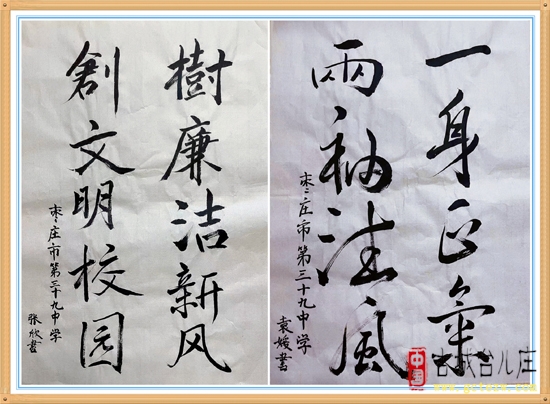 樹廉洁新风
創文明校园
枣庄市第三十九中学
张欣書
一身正氣
兩袖清風
枣庄市第三十九中学
袁媛書
中国
古城台儿庄